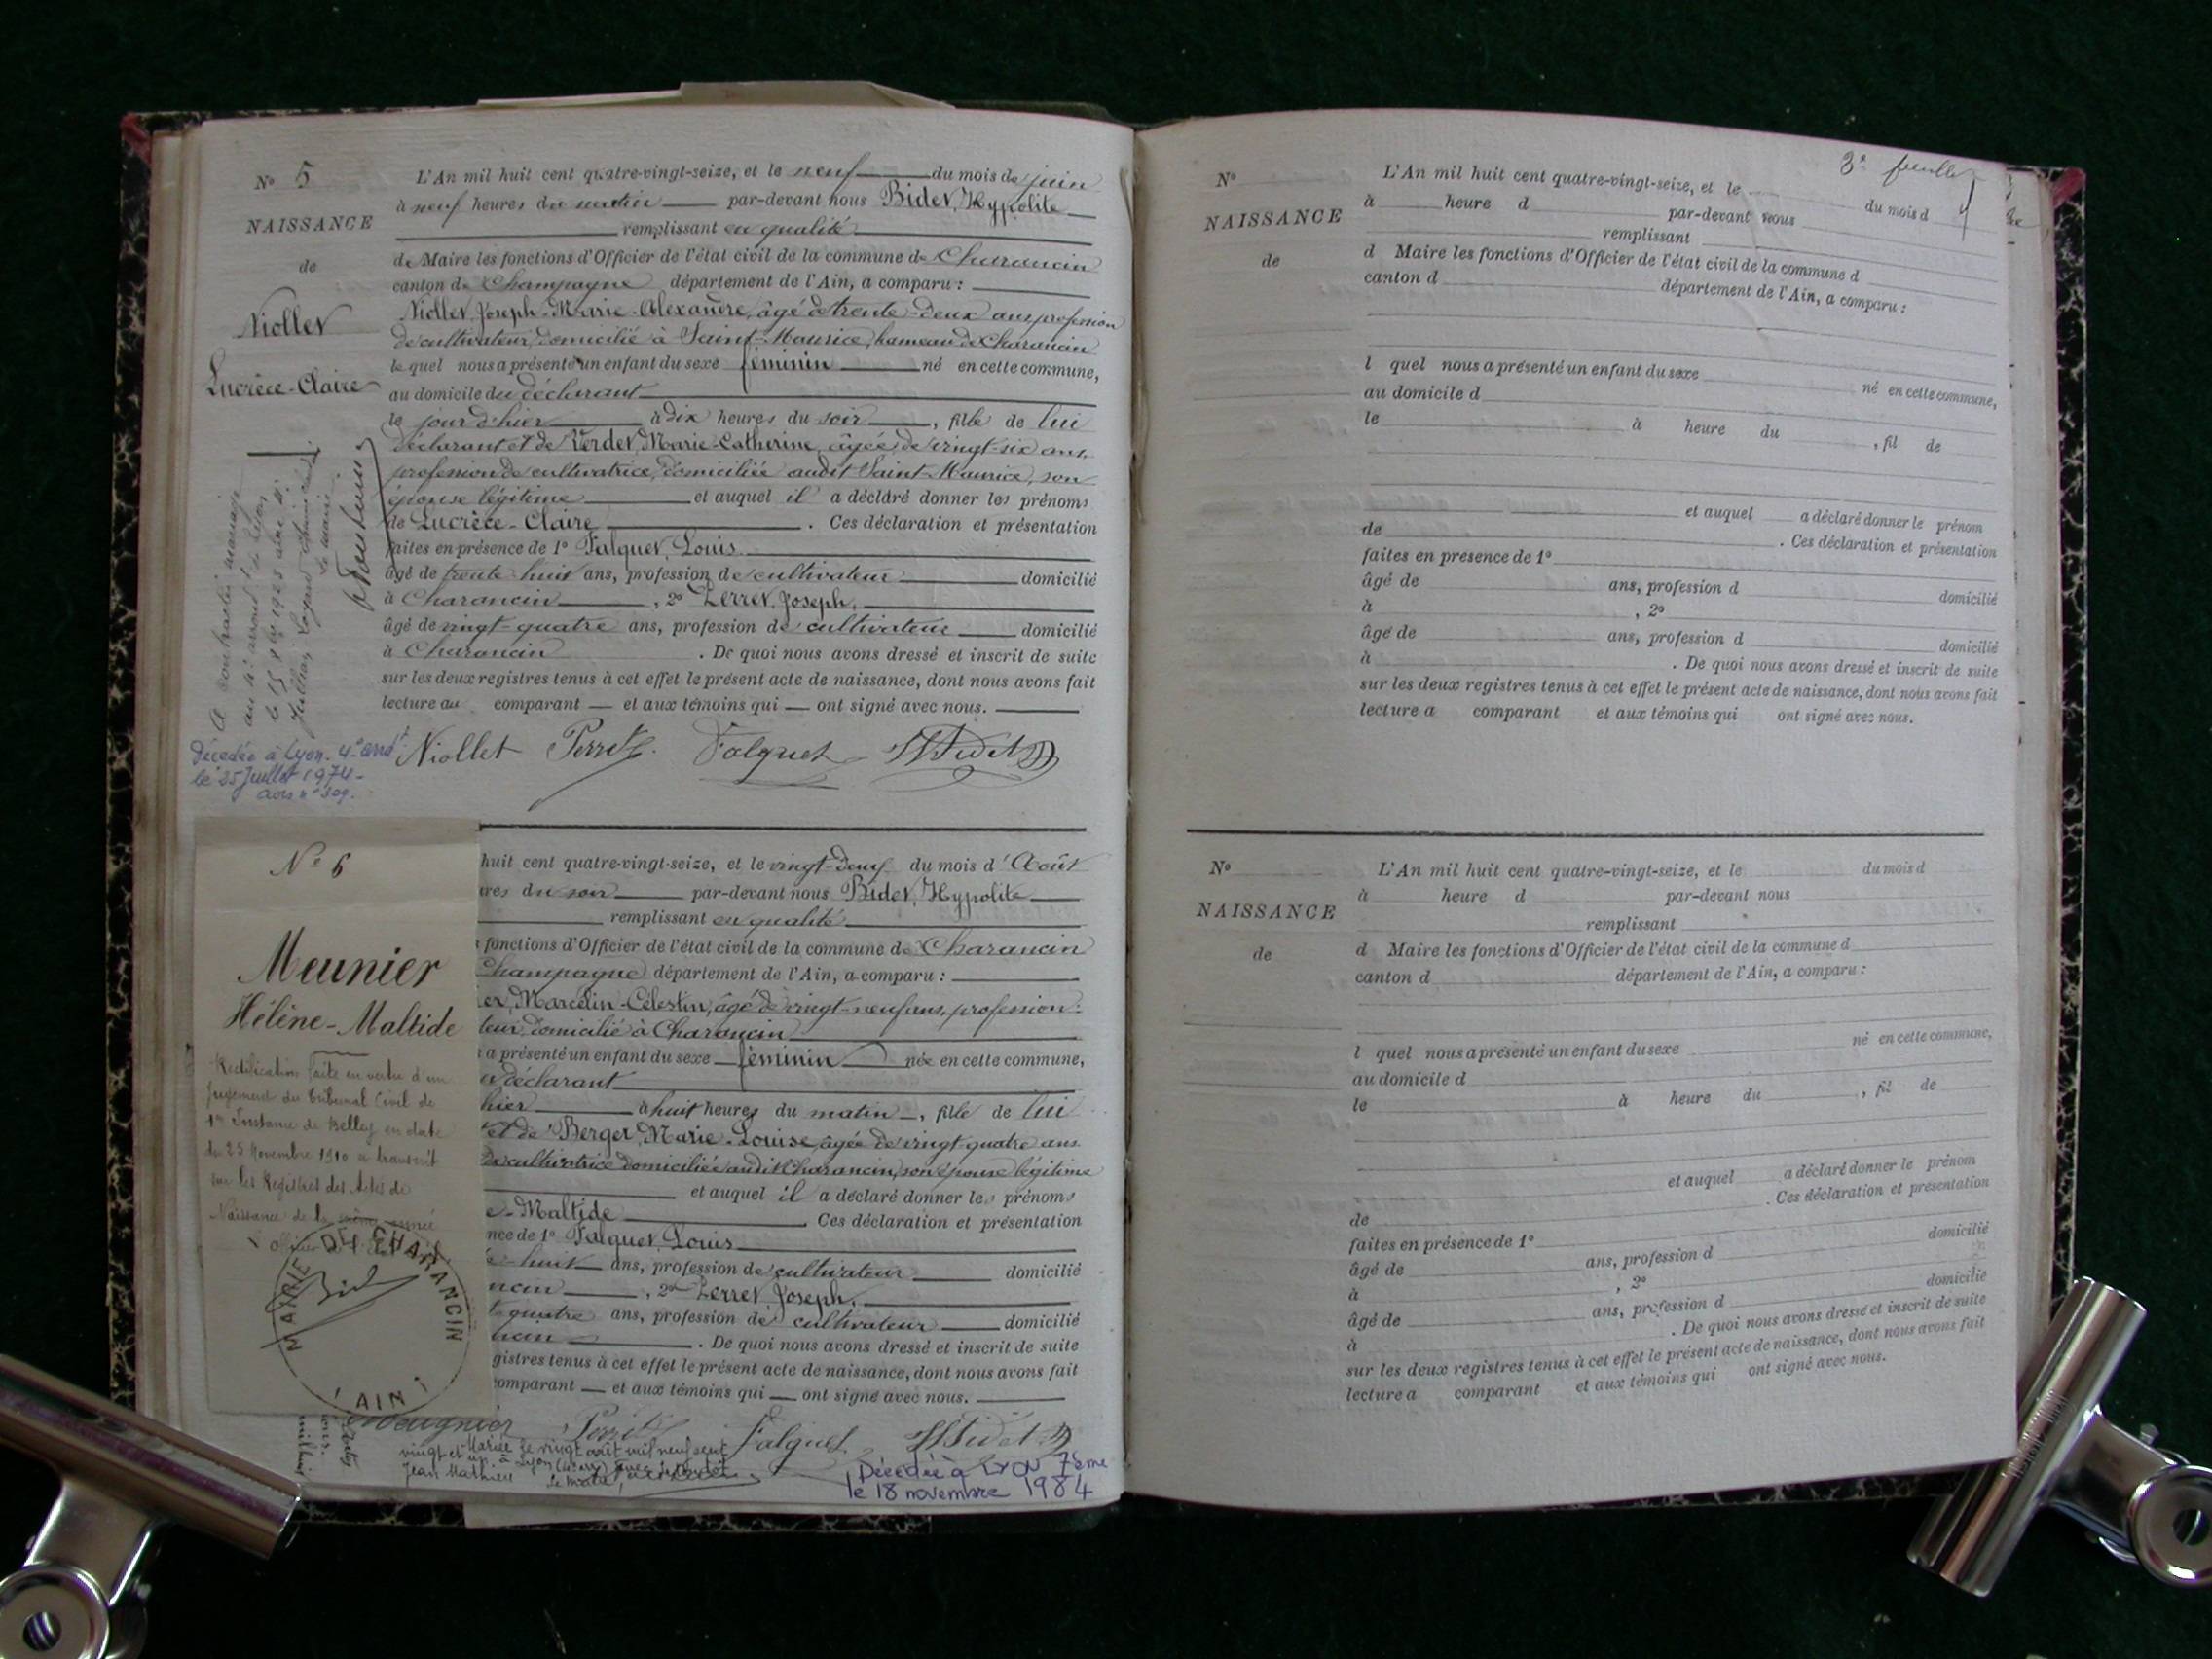 N° 5
NAISSANCE
de
Niollet
Lucrèce-Claire
L'An mil huit cent quatre-vingt-seize, et le neuf du mois de juin
à neuf heures du matin par-devant nous Bidet, Hypolite
remplissant en qualité
de Maire les fonctions d'Officier de l'état civil de la commune de Charancin
canton de Champagne département de l'Ain, a comparu :
Niollet, Joseph-Marie-Alexandre, âgé de trente-deux ans, profession
de cultivateur, domicilié à Saint-Maurice, hameau de Charancin
le quel nous a présenté un enfant du sexe féminin né en cette commune,
au domicile du déclarant
le jour d'hier à dix heures du soir, fille de lui
déclarant et de Verdet, Marie-Catherine, âgée de vingt-six ans,
profession de cultivatrice, domiciliée audit Saint-Maurice, son
épouse légitime et auquel il a déclaré donner les prénoms
de Lucrèce-Claire. Ces déclaration et présentation
faites en présence de 1° Falquet, Louis
âgé de trente-huit ans, profession de cultivateur domicilié
à Charancin, 2° Perret, Joseph,
âgé de vingt-quatre ans, profession de cultivateur domicilié
à Charancin. De quoi nous avons dressé et inscrit de suite
sur les deux registres tenus à cet effet le présent acte de naissance, dont nous avons fait
lecture au comparant et aux témoins qui ont signé avec nous.
Niollet Perret J. Falquet H Bidet
A contracté mariage
au 4e arrond. t de Lyon
le 1925
Le maire
Décédée à Lyon. 4e arrdt
le 25 Juillet 1974
avis n° 509.
N° 6
Meunier
Hélène-Maltide
Rectification faite en vertu d'un
Jugement du Tribunal Civil de
1re Instance de Belley en date
du 25 Novembre 1910 a transcrit
sur les Registres des Actes de
Naissance de la même année
MAIRIE DE CHARANCIN
AIN
huit cent quatre-vingt-seize, et le vingt-deux du mois d'Août
ures du soir par-devant nous Bidet, Hypolite
remplissant en qualité
fonctions d'Officier de l'état civil de la commune de Charancin
Champagne département de l'Ain, a comparu :
ier, Marcelin-Célestin, âgé de vingt-neuf ans, profession
teur, domicilié à Charancin
a présenté un enfant du sexe féminin née en cette commune,
u déclarant
hier à huit heures du matin, fille de lui
et de Berger, Marie-Louise, âgée de vingt-quatre ans
de cultivatrice domiciliée audit Charancin, son épouse légitime
et auquel il a déclaré donner les prénoms
e-Maltide. Ces déclaration et présentation
nce de 1° Falquet, Louis
e-huit ans, profession de cultivateur domicilié
ncin, 2° Perret, Joseph,
t-quatre ans, profession de cultivateur domicilié
ncin. De quoi nous avons dressé et inscrit de suite
gistres tenus à cet effet le présent acte de naissance, dont nous avons fait
comparant et aux témoins qui ont signé avec nous.
Meugnier Perret J. Falquet H Bidet
Mariée le vingt août mil neuf cent
vingt et un à Lyon avec
Jean Mathieu Le maire,
Décédée à LYON 7ème
le 18 novembre 1984
3e feuille
N°
NAISSANCE
de
L'An mil huit cent quatre-vingt-seize, et le du mois d
à heure d par-devant nous
remplissant
d Maire les fonctions d'Officier de l'état civil de la commune d
canton d département de l'Ain, a comparu :
l quel nous a présenté un enfant du sexe né en cette commune,
au domicile d
le à heure du , fil de
et auquel a déclaré donner le prénom
de . Ces déclaration et présentation
faites en présence de 1°
âgé de ans, profession d domicilié
à , 2°
âgé de ans, profession d domicilié
à . De quoi nous avons dressé et inscrit de suite
sur les deux registres tenus à cet effet le présent acte de naissance, dont nous avons fait
lecture a comparant et aux témoins qui ont signé avec nous.
N°
NAISSANCE
de
L'An mil huit cent quatre-vingt-seize, et le du mois d
à heure d par-devant nous
remplissant
d Maire les fonctions d'Officier de l'état civil de la commune d
canton d département de l'Ain, a comparu :
l quel nous a présenté un enfant du sexe né en cette commune,
au domicile d
le à heure du , fil de
et auquel a déclaré donner le prénom
de . Ces déclaration et présentation
faites en présence de 1°
âgé de ans, profession d domicilié
à , 2°
âgé de ans, profession d domicilié
à . De quoi nous avons dressé et inscrit de suite
sur les deux registres tenus à cet effet le présent acte de naissance, dont nous avons fait
lecture a comparant et aux témoins qui ont signé avec nous.